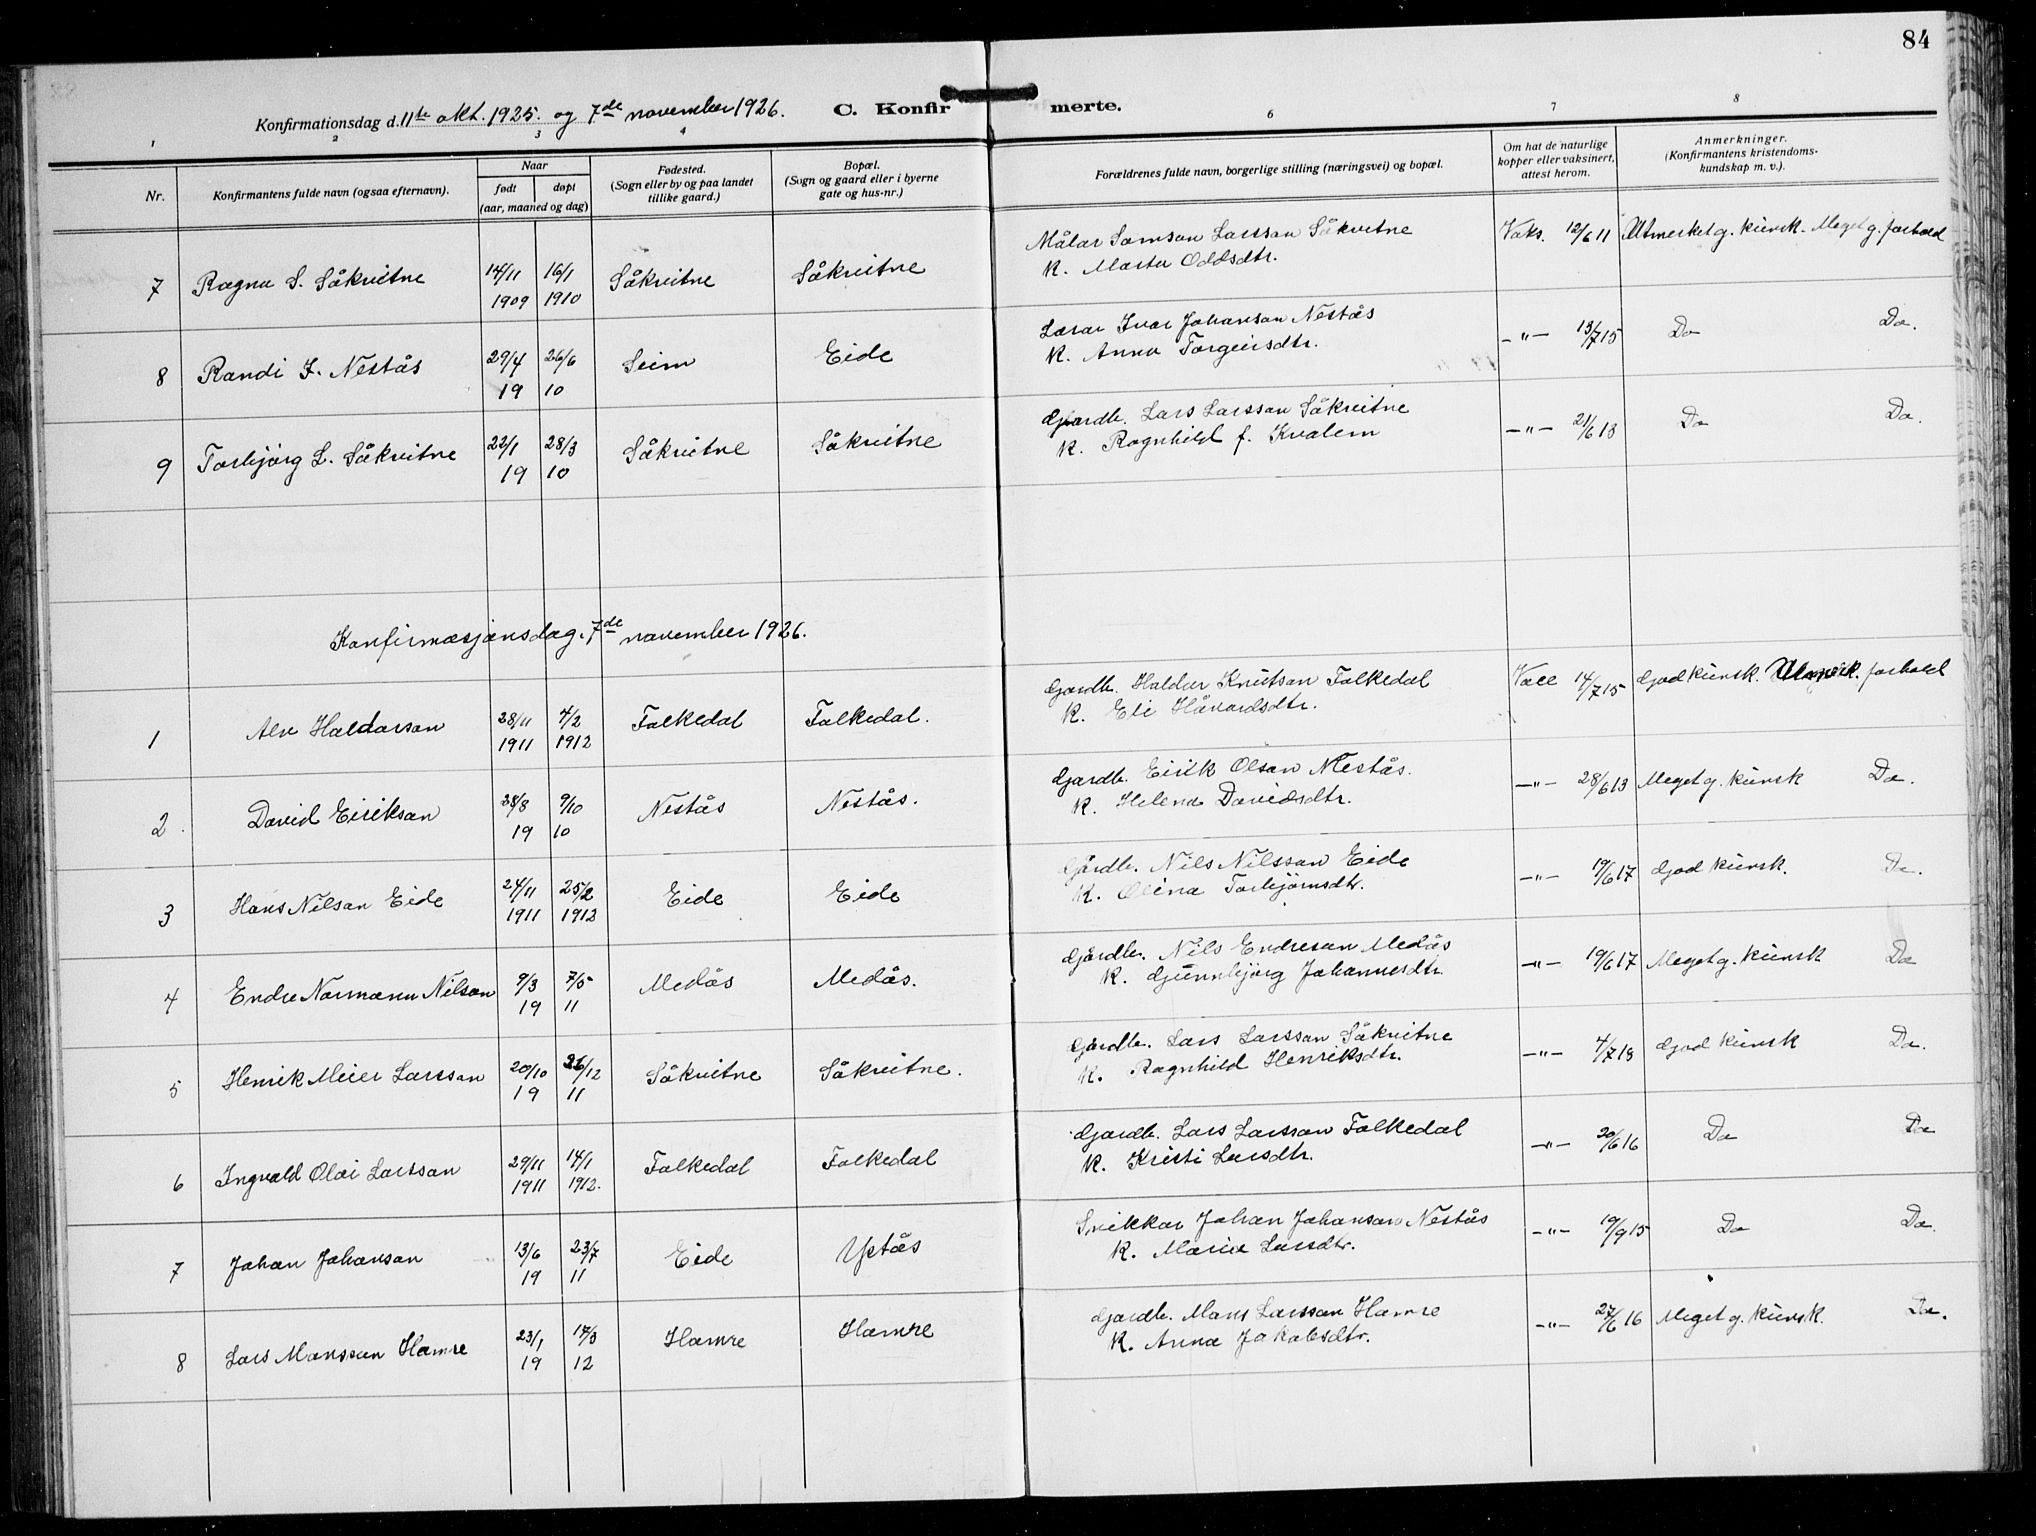 84
Konfirmationsdag d. 11te okt. 1925. og 7de november 1926. C. Konfirmerte.
1 2 3 4 6 7 8
Nr. Konfirmantens fulde navn (ogsaa efternavn). Naar født døpt (aar, maaned og dag) Fødested. (Sogn eller by og paa landet tillike gaard.) Bopæl. (Sogn og gaard eller i byerne gate og hus-nr.) Forældrenes fulde navn, borgerlige stilling (næringsvei) og bopæl. Om hat de naturlige kopper eller vaksinert, attest herom. Anmerkninger. (Konfirmantens kristendoms-kundskap m. v.).
7 Ragna S. Såkvitne 14/11 1909 16/1 1910 Såkvitne Såkvitne Målar Samson Larsson Såkvitne Vaks. 12/6 11 Utmerket g. kunsk. Meget g. forhold
K. Marta Oddsdtr.
8 Randi I. Nestås 29/4 19 26/6 10 Seim Eide Lærar Ivar Johanson Nestås -"- 13/7 15 Do Do.
K. Anna Torgeirsdtr.
9 Torbjörg L. Såkvitne 22/1 19 28/3 10 Såkvitne Såkvitne Gardb. Lars Larsson Såkvitne -"- 21/6 13 Do Do.
K. Ragnhild f. Kvalem
Konfirmasjonsdag. 7de november 1926.
1 Alv Haldorson 28/11 1911 4/2 1912 Folkedal Folkedal. Gardb. Haldor Knutson Folkedal Vacc 14/7 15 God kunsk. forhold
K. Eli Håvardsdtr.
2 David Eirikson 28/8 19 9/10 10 Nestås Nestås. Gardb. Eirik Olson Nestås. -"- 28/6 13 Meget g. kunsk Do.
K. Helena Davidsdtr.
3 Hans Nilson Eide 24/11 1911 25/2 1912 Eide Eide Gårdb. Nils Nilsson Eide -"- 19/6 17 God kunsk. Do.
K. Olina Torbjörnsdtr.
4 Endre Normann Nilson 9/3 19 7/5 11 Medås Medås. Gårdb. Nils Endreson Medås -"- 19/6 17 Meget g. kunsk Do
K. Gunnbjörg Johannesdtr.
5 Henrik Meier Larsson 20/10 19 26/12 11 Såkvitne Såkvitne. Gårdb. Lars Larsson Såkvitne -"- 4/7 18 God kunsk Do.
K. Ragnhild Henriksdtr.
6 Ingvald Olai Larsson 29/11 1911 14/1 1912. Folkedal Folkedal Gardb. Lars Larsson Folkedal -"- 20/6 16 Do Do
K. Kristi Larsdtr.
7 Johan Johanson 13/6 19 23/7 11 Eide Ystås Snikkar Johan Johanson Nestås -"- 19/9 15 Do Do.
K. Marie Larsdtr.
8 Lars Mansson Hamre 23/1 19 17/3 12 Hamre Hamre Gardb. Mans Larsson Hamre -"- 27/6 16 Meget g. kunsk. Do.
K. Anna Jakobsdtr.